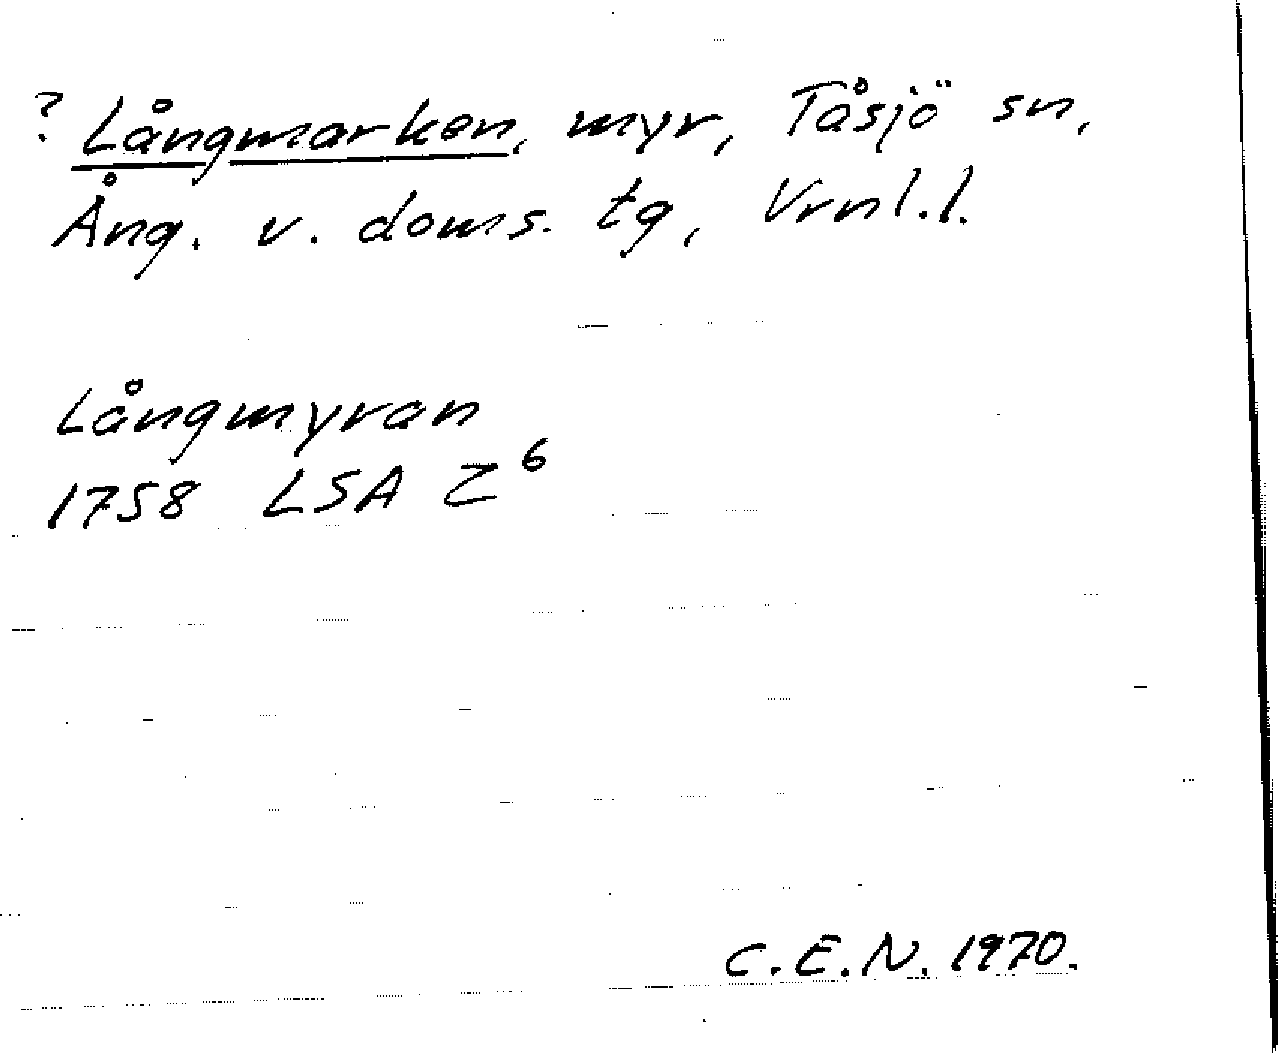 ? Långmarken, myr, Tåsjö sn,
Ång. v. doms. tg, Vrnl.l.
Långmyran
1758 LSA Z⁶
C.E.N. 1970.